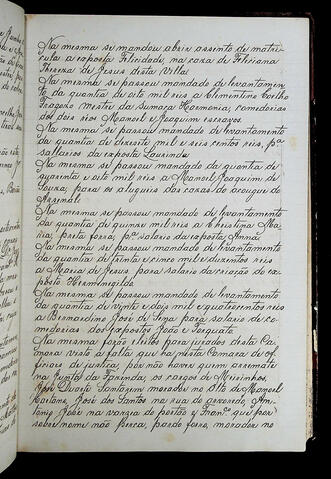 Na mesma se mandou abrir assento de matri-
cula a exposta Felicidade, na caza de Feliciana
Thereza de Jesus desta Villa.
Na mesma se passou mandado de levantamen-
to da quantia de oito mil réis a Clementino Coelho
Fragozo mestre da Sumaca Harmonia, comedorias
dos dois réos Manoel e Joaquim escravos.
Na mesma se passou mandado de levantamento
da quantia de dezesete mil e seis centos réis, pª
sallarios da exposta Laurinda.
Na mesma se passou mandado da quantia de
quarenta e oito mil réis a Manoel Joaquim de
Souza, para os alugueis das cazas do açougue do
Arsenal.
Na mesma se passou mandado de levantamento
da quantia de quinze mil réis a Christina Ma-
ria, preta forra, pª salario da exposta Anna.
Na mesma se passou mandado de levantamento
da quantia de trinta e cinco mil e duzentos réis
a Maria de Jesus para salario da criação do ex-
posto Hermenegildo.
Na mesma se passou mandado de levantamento
da quantia de vinte e dois mil e quatrocentos réis
a Bernardino José de Sena para salario de co-
medorias dos expostos João e Torquato.
Na mesma forão eleitos para jurados desta Ca-
mara visto a falta que ha nesta Comarca de of-
ficiaes de justiça, por não haver quem arremate
na Junta da Fazenda, os cargos de Meirinhos,
José Duarte Santarem morador no Sitio de Manoel
Caetano, José dos Santos na rua do arvoredo, An-
tonio José na varzia do portão e Franco que por
sobre nome não perca, pardo forro, morador no